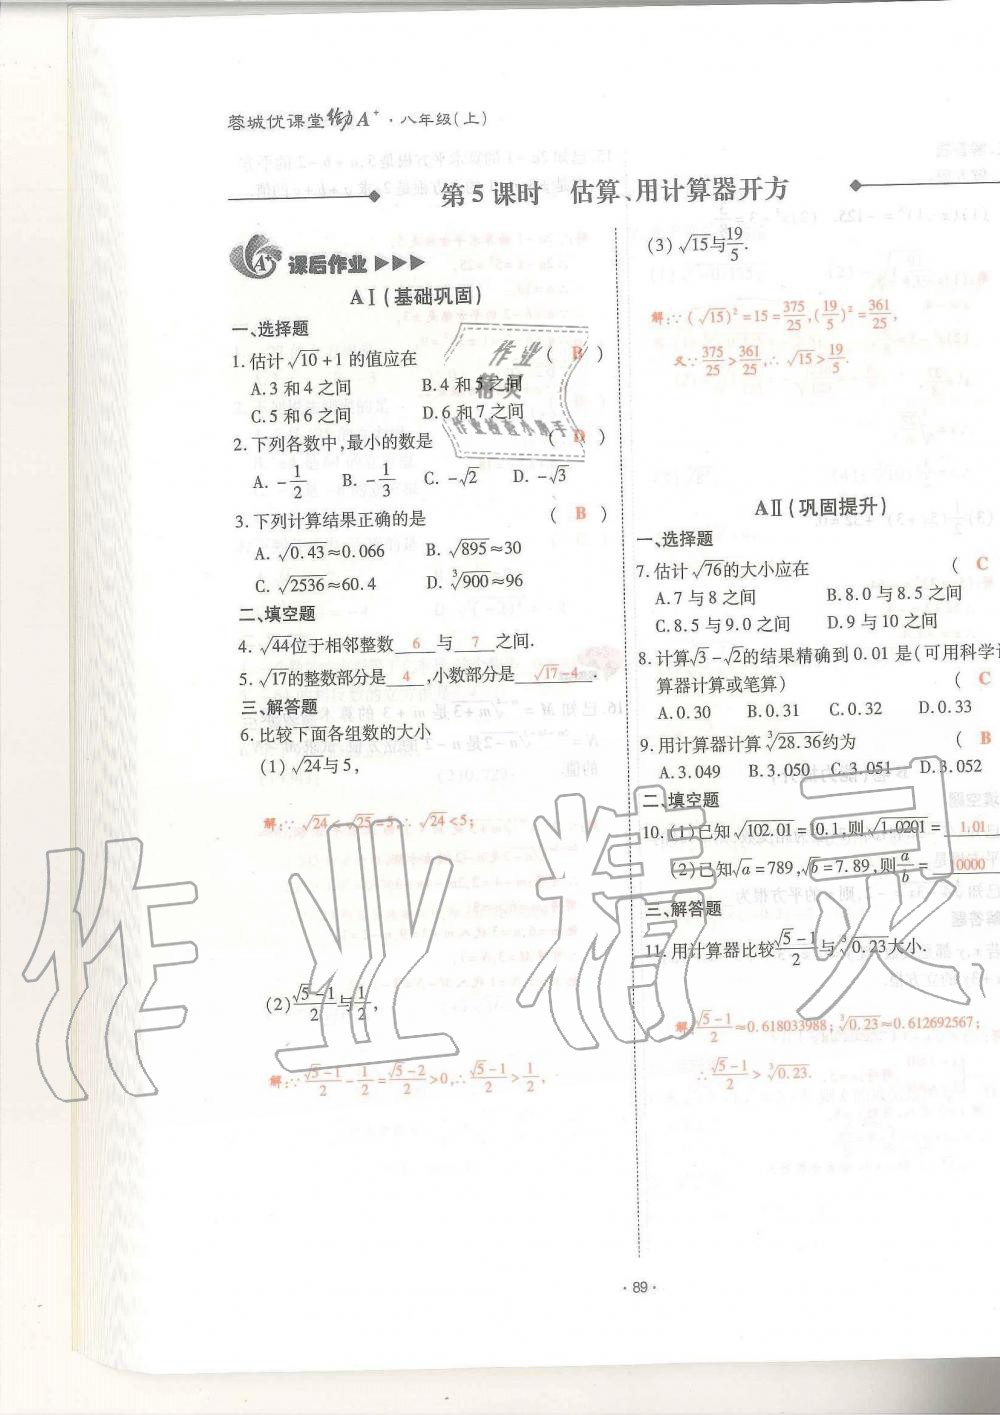 蓉城优课堂 A⁺·八年级(上)
第5课时 估算、用计算器开方
A⁺ 课后作业
AⅠ(基础巩固)
一、选择题
1.估计√10+1的值应在 ( B )
A.3和4之间 B.4和5之间
C.5和6之间 D.6和7之间
2.下列各数中,最小的数是 ( D )
A. -1/2 B. -1/3 C. -√2 D. -√3
3.下列计算结果正确的是 ( B )
A. √0.43≈0.066 B. √895≈30
C. √2536≈60.4 D. ∛900≈96
二、填空题
4. √44位于相邻整数 6 与 7 之间.
5. √17的整数部分是 4 ,小数部分是 √17-4 .
三、解答题
6.比较下面各组数的大小
(1)√24与5,
解:∵√24<√25=5,∴√24<5;
(2)(√5-1)/2与1/2,
解:∵(√5-1)/2-1/2=(√5-2)/2>0,∴(√5-1)/2>1/2,
(3)√15与19/5.
解:∵(√15)²=15=375/25,(19/5)²=361/25,
又∵375/25>361/25,∴√15>19/5.
AⅡ(巩固提升)
一、选择题
7.估计√76的大小应在 ( C
A.7与8之间 B.8.0与8.5之间
C.8.5与9.0之间 D.9与10之间
8.计算√3-√2的结果精确到0.01是(可用科学计
算器计算或笔算) ( C
A.0.30 B.0.31 C.0.32 D.0.33
9.用计算器计算∛28.36约为 ( B
A.3.049 B.3.050 C.3.051 D.3.052
二、填空题
10.(1)已知√102.01=10.1,则√1.0201= 1.01
(2)已知√a=789,√b=7.89,则a/b= 10000
三、解答题
11.用计算器比较(√5-1)/2与∛0.23大小.
解:(√5-1)/2≈0.618033988;∛0.23≈0.612692567;
∴(√5-1)/2>∛0.23.
·89·
作业精灵
作业
精灵
作业检查小帮手